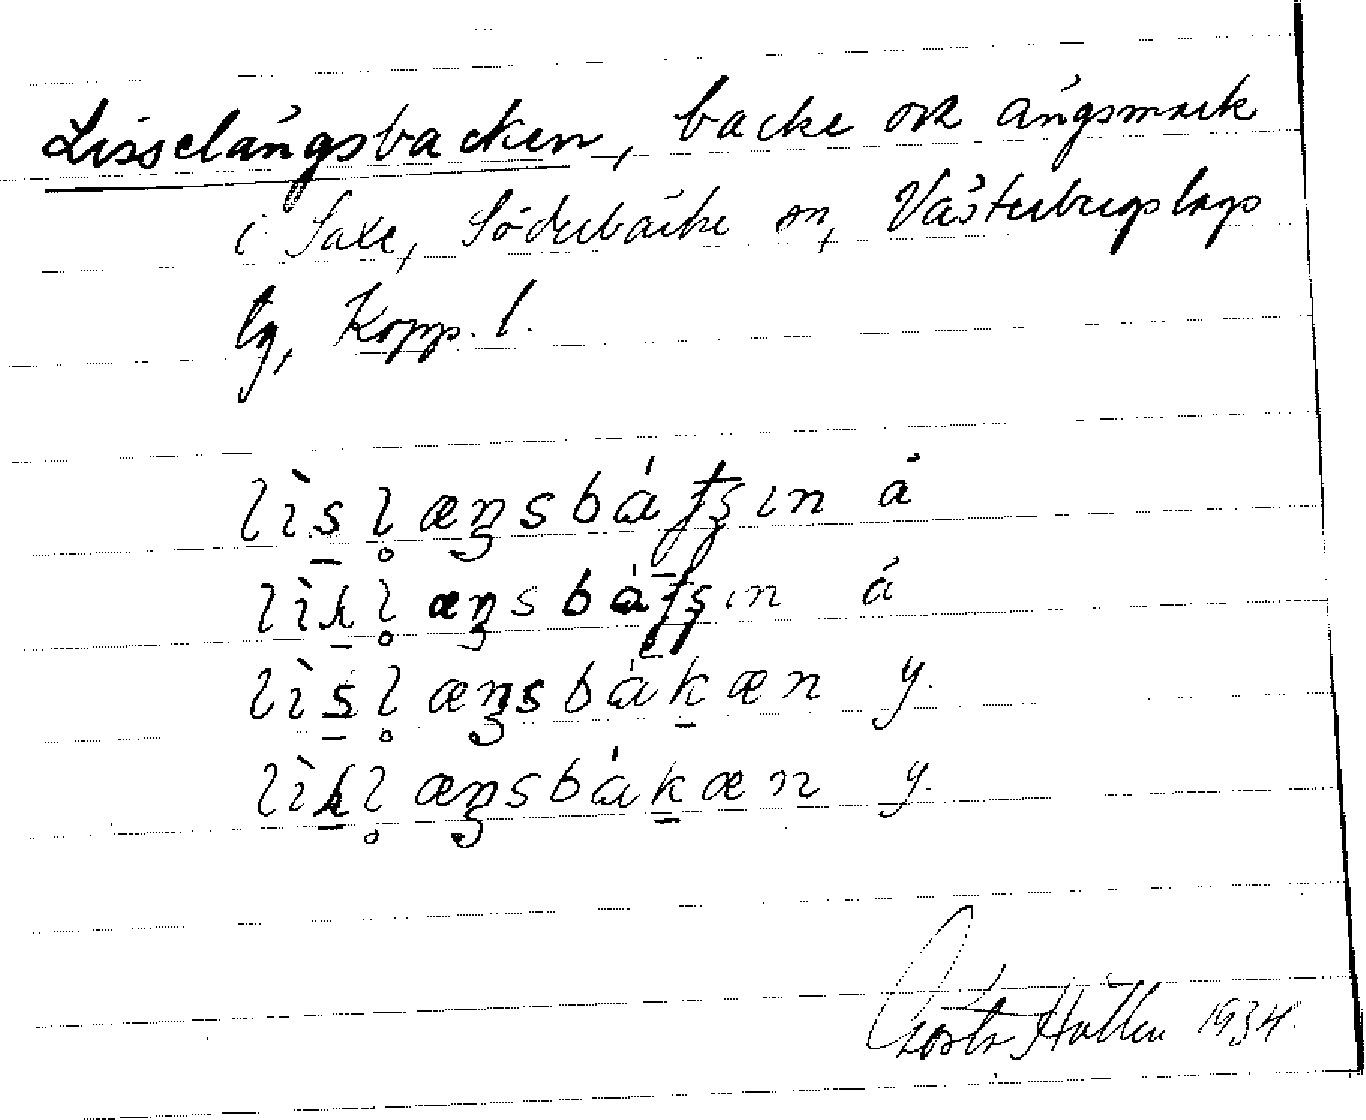 Lisselängsbacken, backe och ängsmark
i Saxe, Söderbärke sn, Västerbergslags
tg, Kopp. l.
lìsl̥æŋsbátʂın ä
lìhl̥æŋsbátʂın ä
lìsl̥æŋsbákæn y.
lìhl̥æŋsbákæn y.
Gösta Hallén 1934.